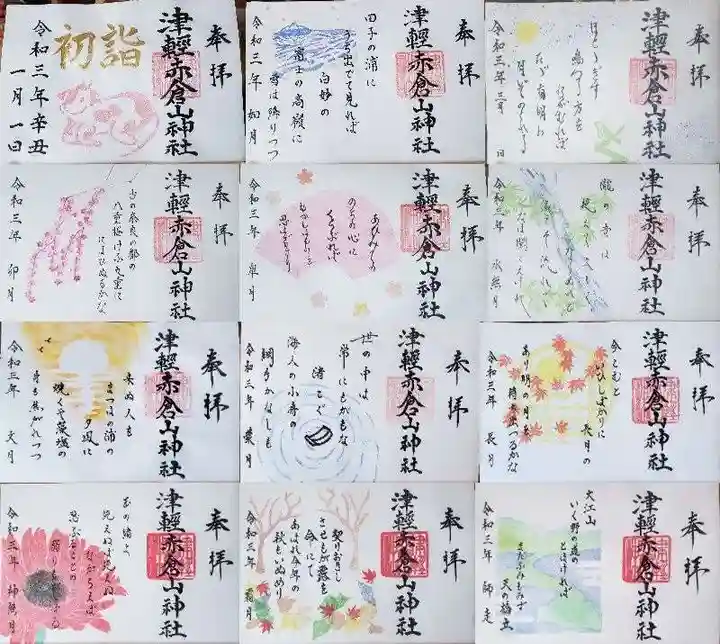 奉拝
津輕赤倉山神社
初詣
令和三年辛丑
一月一日
奉拝
津輕赤倉山神社
田子の浦に
うち出でて見れば
白妙の
富士の高嶺に
雪は降りつつ
令和三年 如月
奉拝
津輕赤倉山神社
ほととぎす
鳴きつる方を
ながむれば
ただ有明の
月ぞのこれる
令和三年
奉拝
津輕赤倉山神社
奈良の都の
八重桜けふ九重に
にほひぬるかな
令和三年 卯月
奉拝
津輕赤倉山神社
あひみての
のちの心に
くらぶれば
令和三年 皐月
奉拝
津輕赤倉山神社
瀧の音は
令和三年 水無月
奉拝
津輕赤倉山神社
来ぬ人を
まつほの浦の
夕凪に
焼くや藻塩の
身も焦がれつつ
令和三年 文月
奉拝
津輕赤倉山神社
世の中は
常にもがもな
渚こぐ
海人の小舟の
綱手かなしも
令和三年 葉月
奉拝
津輕赤倉山神社
今こむと
いひしばかりに
長月の
あり明の月を
待ち出つるかな
令和三年 長月
奉拝
津輕赤倉山神社
玉の緒よ
絶えねば絶えね
ながらへば
忍ぶることの
令和三年 神無月
奉拝
津輕赤倉山神社
契りおきし
させもが露を
命にて
あはれ今年の
秋もいぬめり
令和三年 霜月
奉拝
津輕赤倉山神社
大江山
いく野の道の
とほければ
まだふみもみず
天の橋立
令和三年 師走